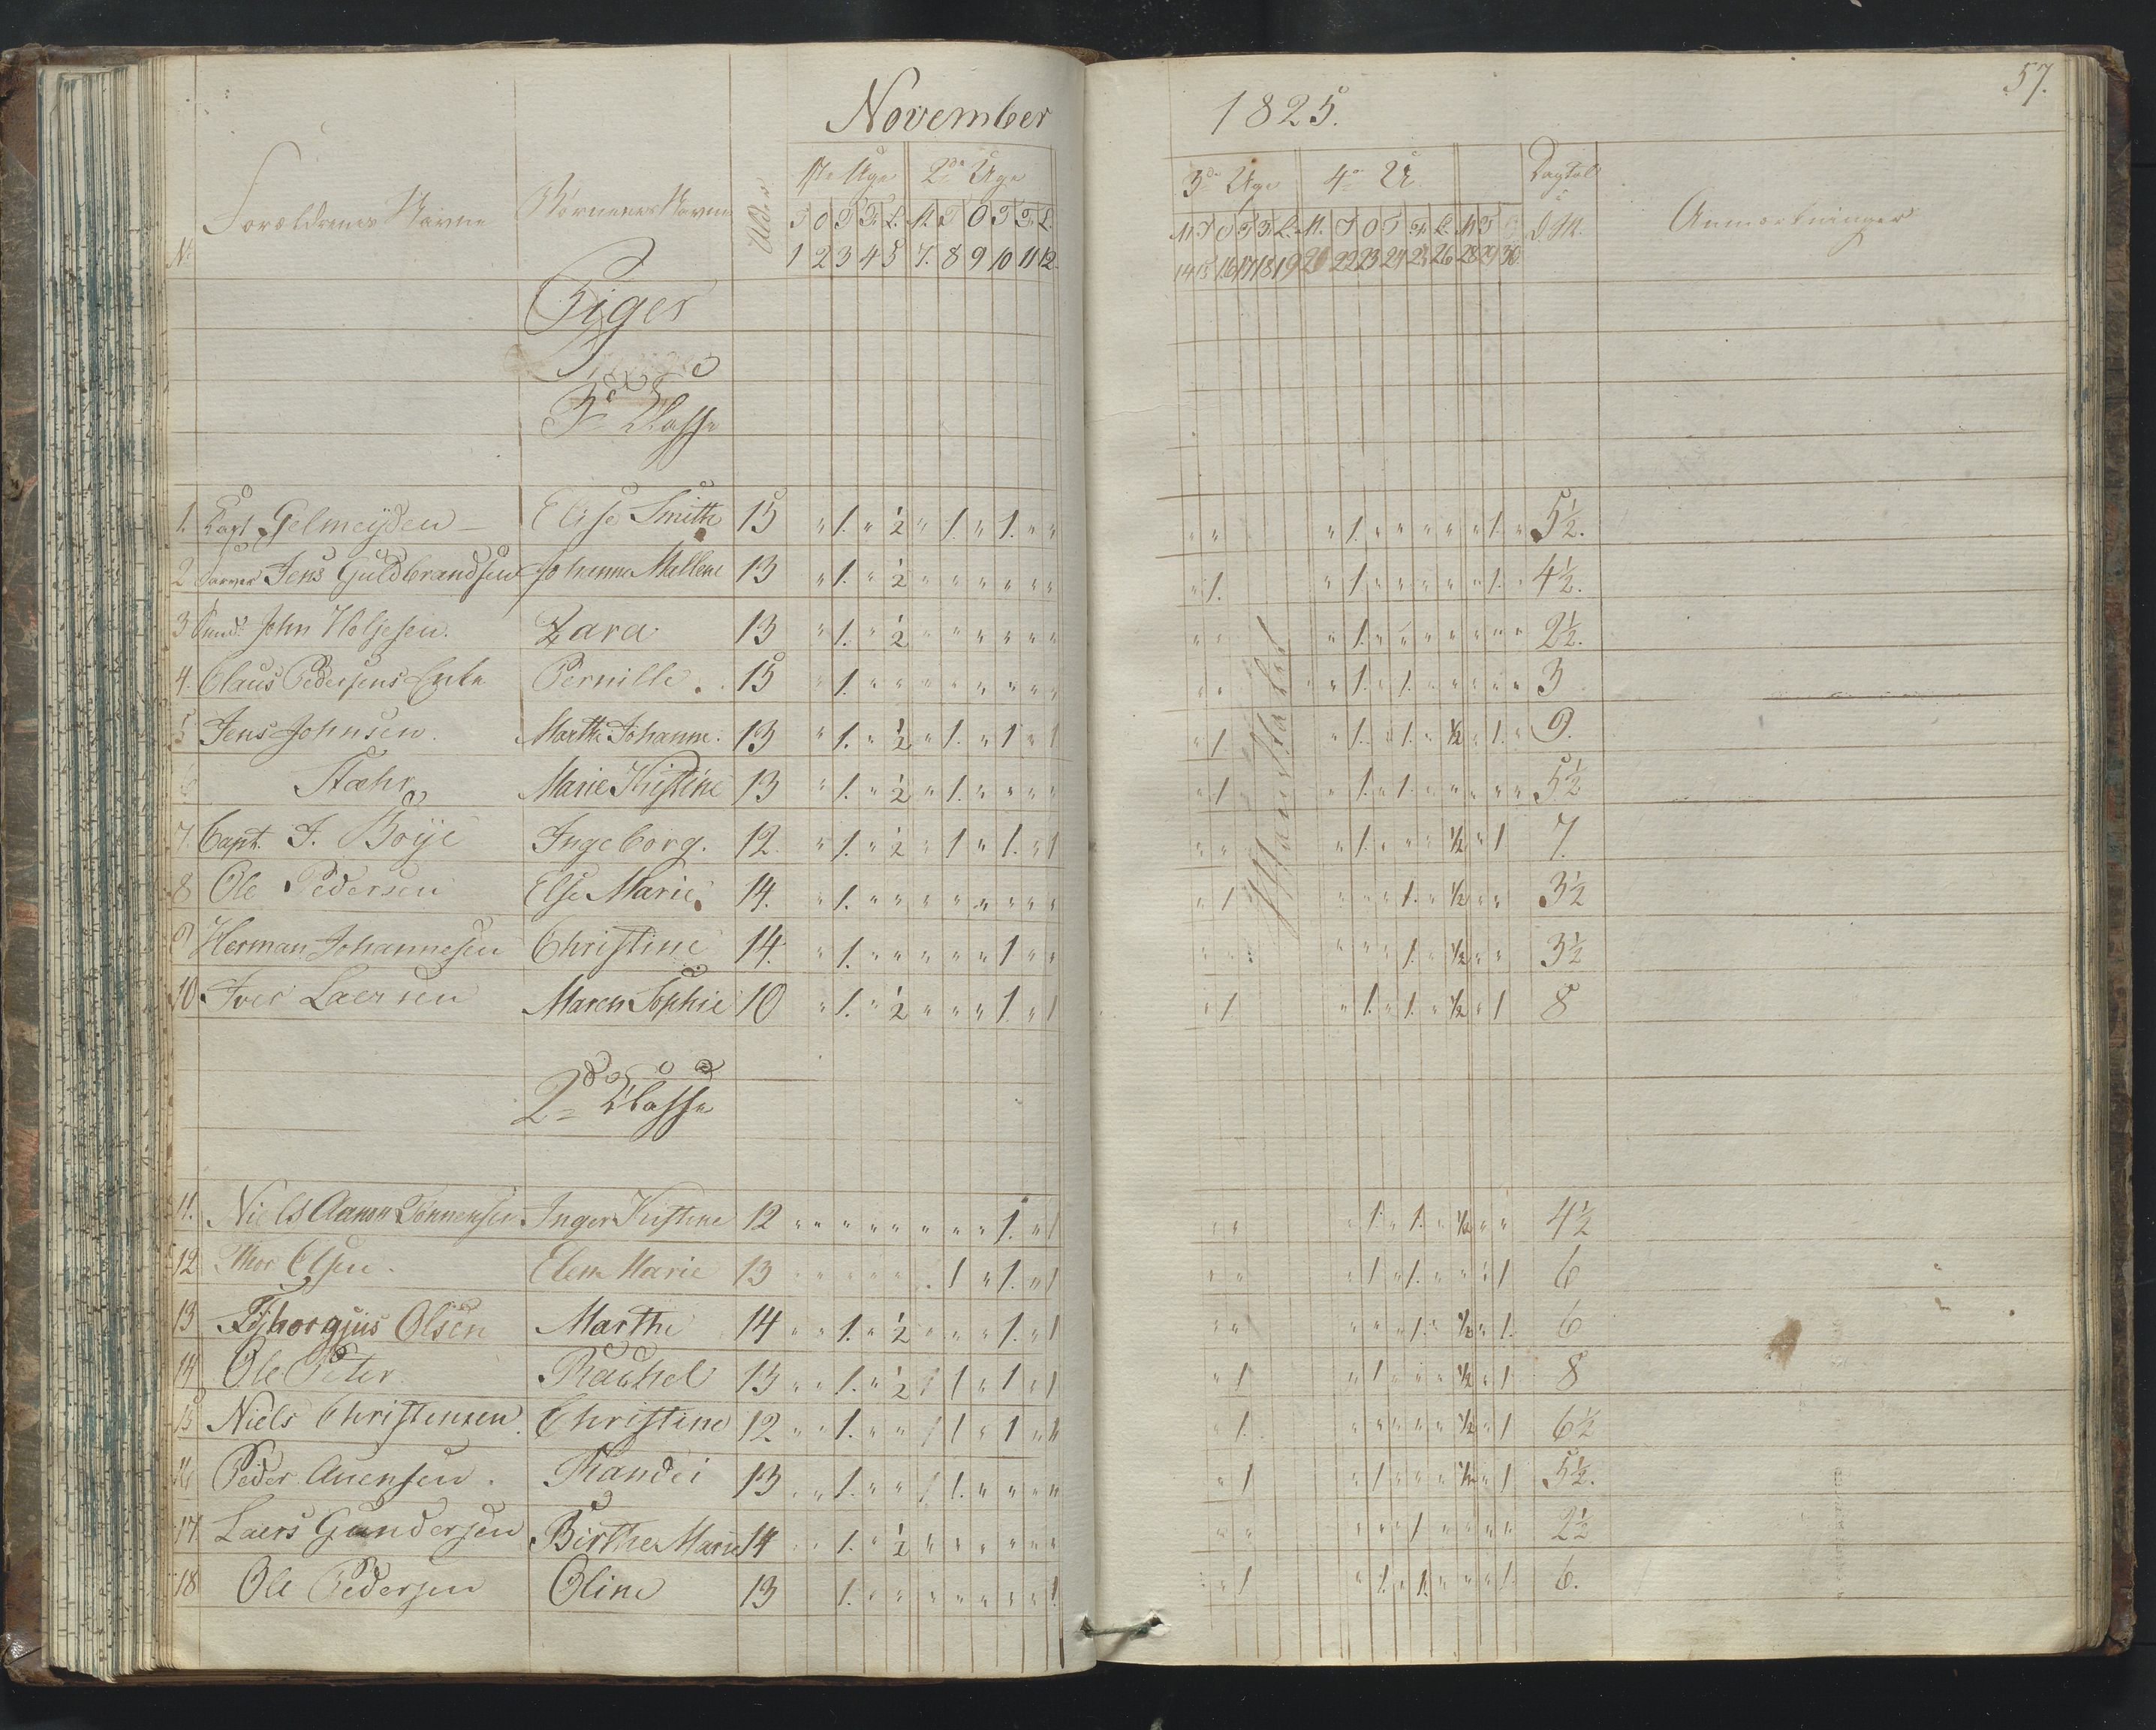 November 1825.
57.
1ste Uge 2de Uge 3de Uge 4de U Dagtal
No. Forældrenes Navne Børnenes Navne Alder T O T F L. M T O T F L. M T O T F L. M. T O T F L. M T D. M. Anmærkninger
1 2 3 4 5 7. 8 9 10 11 12. 14 15 16 17 18 19 22 23 24 25 26 28 29 30
Piger
3de Classe
1. Capt Gelmeÿden – Elise Smith 15 " 1. " ½ " 1. " 1. " " " " " 1. " " " " " 1. " 5½.
2 Jens Guldbrandsen Johanne Mallene 13 " 1. " ½ " " " " " " " 1. " 1. " " " " " 1. " 4½.
3 John Holjesen. Zara 13 " 1. " ½ " " " " " " " " " 1. " " " " " " " 2½.
4. Claus Pedersens Enke Pernille. 15 " 1. " " " " " " " " " " " 1. " 1. " " " " " 3
5 Jens Johnsen. Marthe Johanne. 13 " 1. " ½ " 1. " 1 " 1 " 1. " 1. " 1. " ½ " 1. " 9.
6 Stæhr Marie Kristine 13 " 1. " ½ " 1. " " " " " 1 " 1. " 1. " " " " " 5½
7. Capt. J. Boÿe Ingeborg. 12. " 1. " ½ " 1 " 1. " 1 " " " 1. " " " ½ " 1 7.
8 Ole Pedersen Else Marie. 14. " 1. " " " " " " " " " 1 " " " 1. " ½ " " 3½
9 Herman Johannesen Christine 14. " 1. " " " " " 1 " " " " " " " 1. " ½ " " 3½
10 Iver Laersen Maren Sophie 10 " 1. " ½ " " " 1. " 1 " 1 " 1. " 1. " ½ " 1 8
2de Classe
11. Niels Aanon Tønnensen Inger Kistine 12 " " " " " " " " " 1. " 1 " " " 1. " 1. " ½ " " 4½
12 Thor Elsen. Elen Marie 13 " " " " " " 1 " 1. " 1 " " " 1 " 1. " " " 1 6
13 Olsen Marthe 14 " " 1. " ½ " " " 1. " 1 " " " " " 1. " ½ " 1. 6
14 Ole Peter Rachel 13 " " 1. " ½ 1 1 " 1 " 1 " 1 " 1 " " " ½ " 1 8
15 Niels Christensen. Christine 12 " " 1. " " 1 1 " 1 " " " 1. " " " " " ½ " 1 6½
16 Peder Auensen. Randei 13 " " 1. " " 1 1. " " " " " 1 " 1 " " " ½ " 1 5½.
17 Laers Gundersen Birthe Marie 14 " " 1. " ½ " " " " " " " " " " " 1 " " " " 2½
18 Ole Pedersen Oline 13 1. " " " " " " " 1. " 1 " 1. " 1. " " " 1. 6.